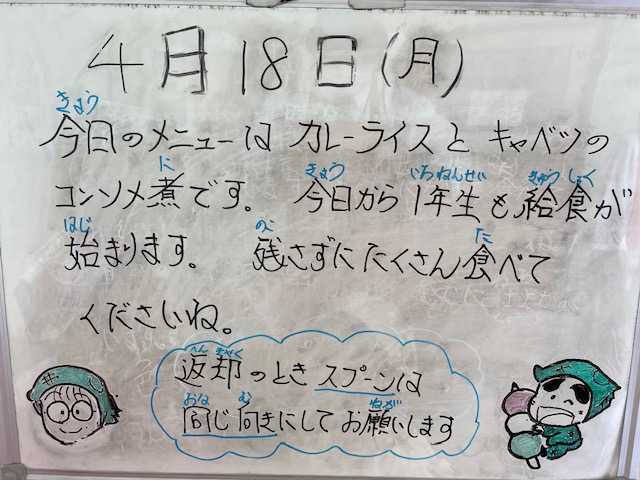 4月18日(月)
きょう
今日のメニューは カレーライスと キャベツの
に きょう いちねんせい きゅうしょく
コンソメ煮です。 今日から 1年生も給食が
はじ のこ た
始まります。 残さずに たくさん食べて
くださいね。
へんきゃく
返却のとき スプーンは
おな む ねが
同じ向きにして お願いします